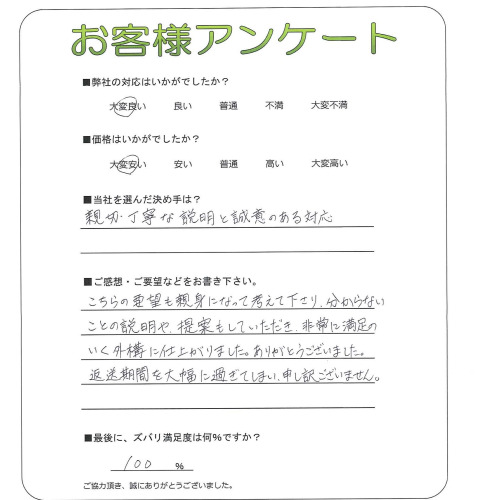 お客様アンケート
■弊社の対応はいかがでしたか？
大変良い 良い 普通 不満 大変不満
■価格はいかがでしたか？
大変安い 安い 普通 高い 大変高い
■当社を選んだ決め手は？
親切・丁寧な説明と誠意のある対応
■ご感想・ご要望などをお書き下さい。
こちらの要望も親身になって考えて下さり、分からない
ことの説明や、提案もしていただき、非常に満足の
いく外構に仕上がりました。ありがとうございました。
返送期間を大幅に過ぎてしまい、申し訳ございません。
■最後に、ズバリ満足度は何％ですか？
100 ％
ご協力頂き、誠にありがとうございました。